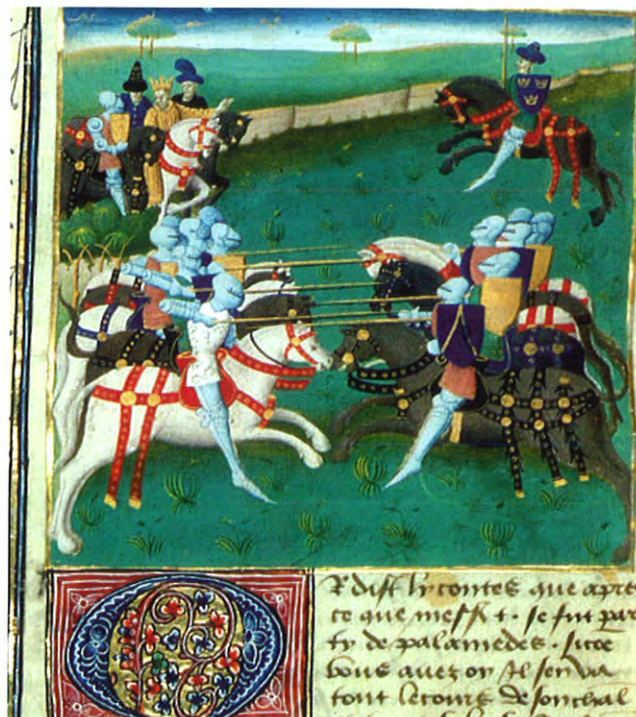 R dist ly contes que apre
ce que mess t. se fut par
ty de palamedes. sicoe
vous avez oy Il sen va
tout le cours de son chal